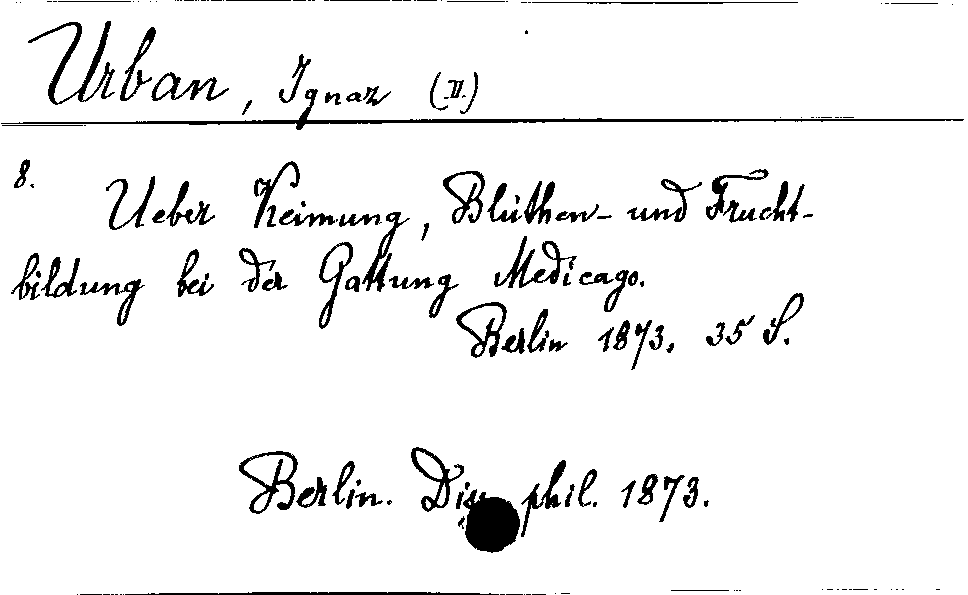 Urban, Ignaz (II.)
8. Ueber Keimung, Blüthen- und Frucht-
bildung bei der Gattung Medicago.
Berlin 1873. 35 S.
Berlin. Diss. phil. 1873.